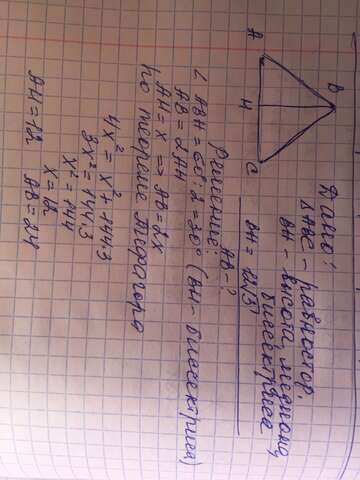 Дано:
△ABC - равностор.
BH - высота, медиана,
биссектриса
BH = 12√3
AB - ?
B
A
H
C
Решение:
∠ABH = 60° : 2 = 30° (BH - биссектриса)
AB = 2AH
AH = x => AB = 2x
по теореме Пифагора
4x² = x² + 144·3
3x² = 144·3
x² = 144
x = 12
AH = 12 AB = 24